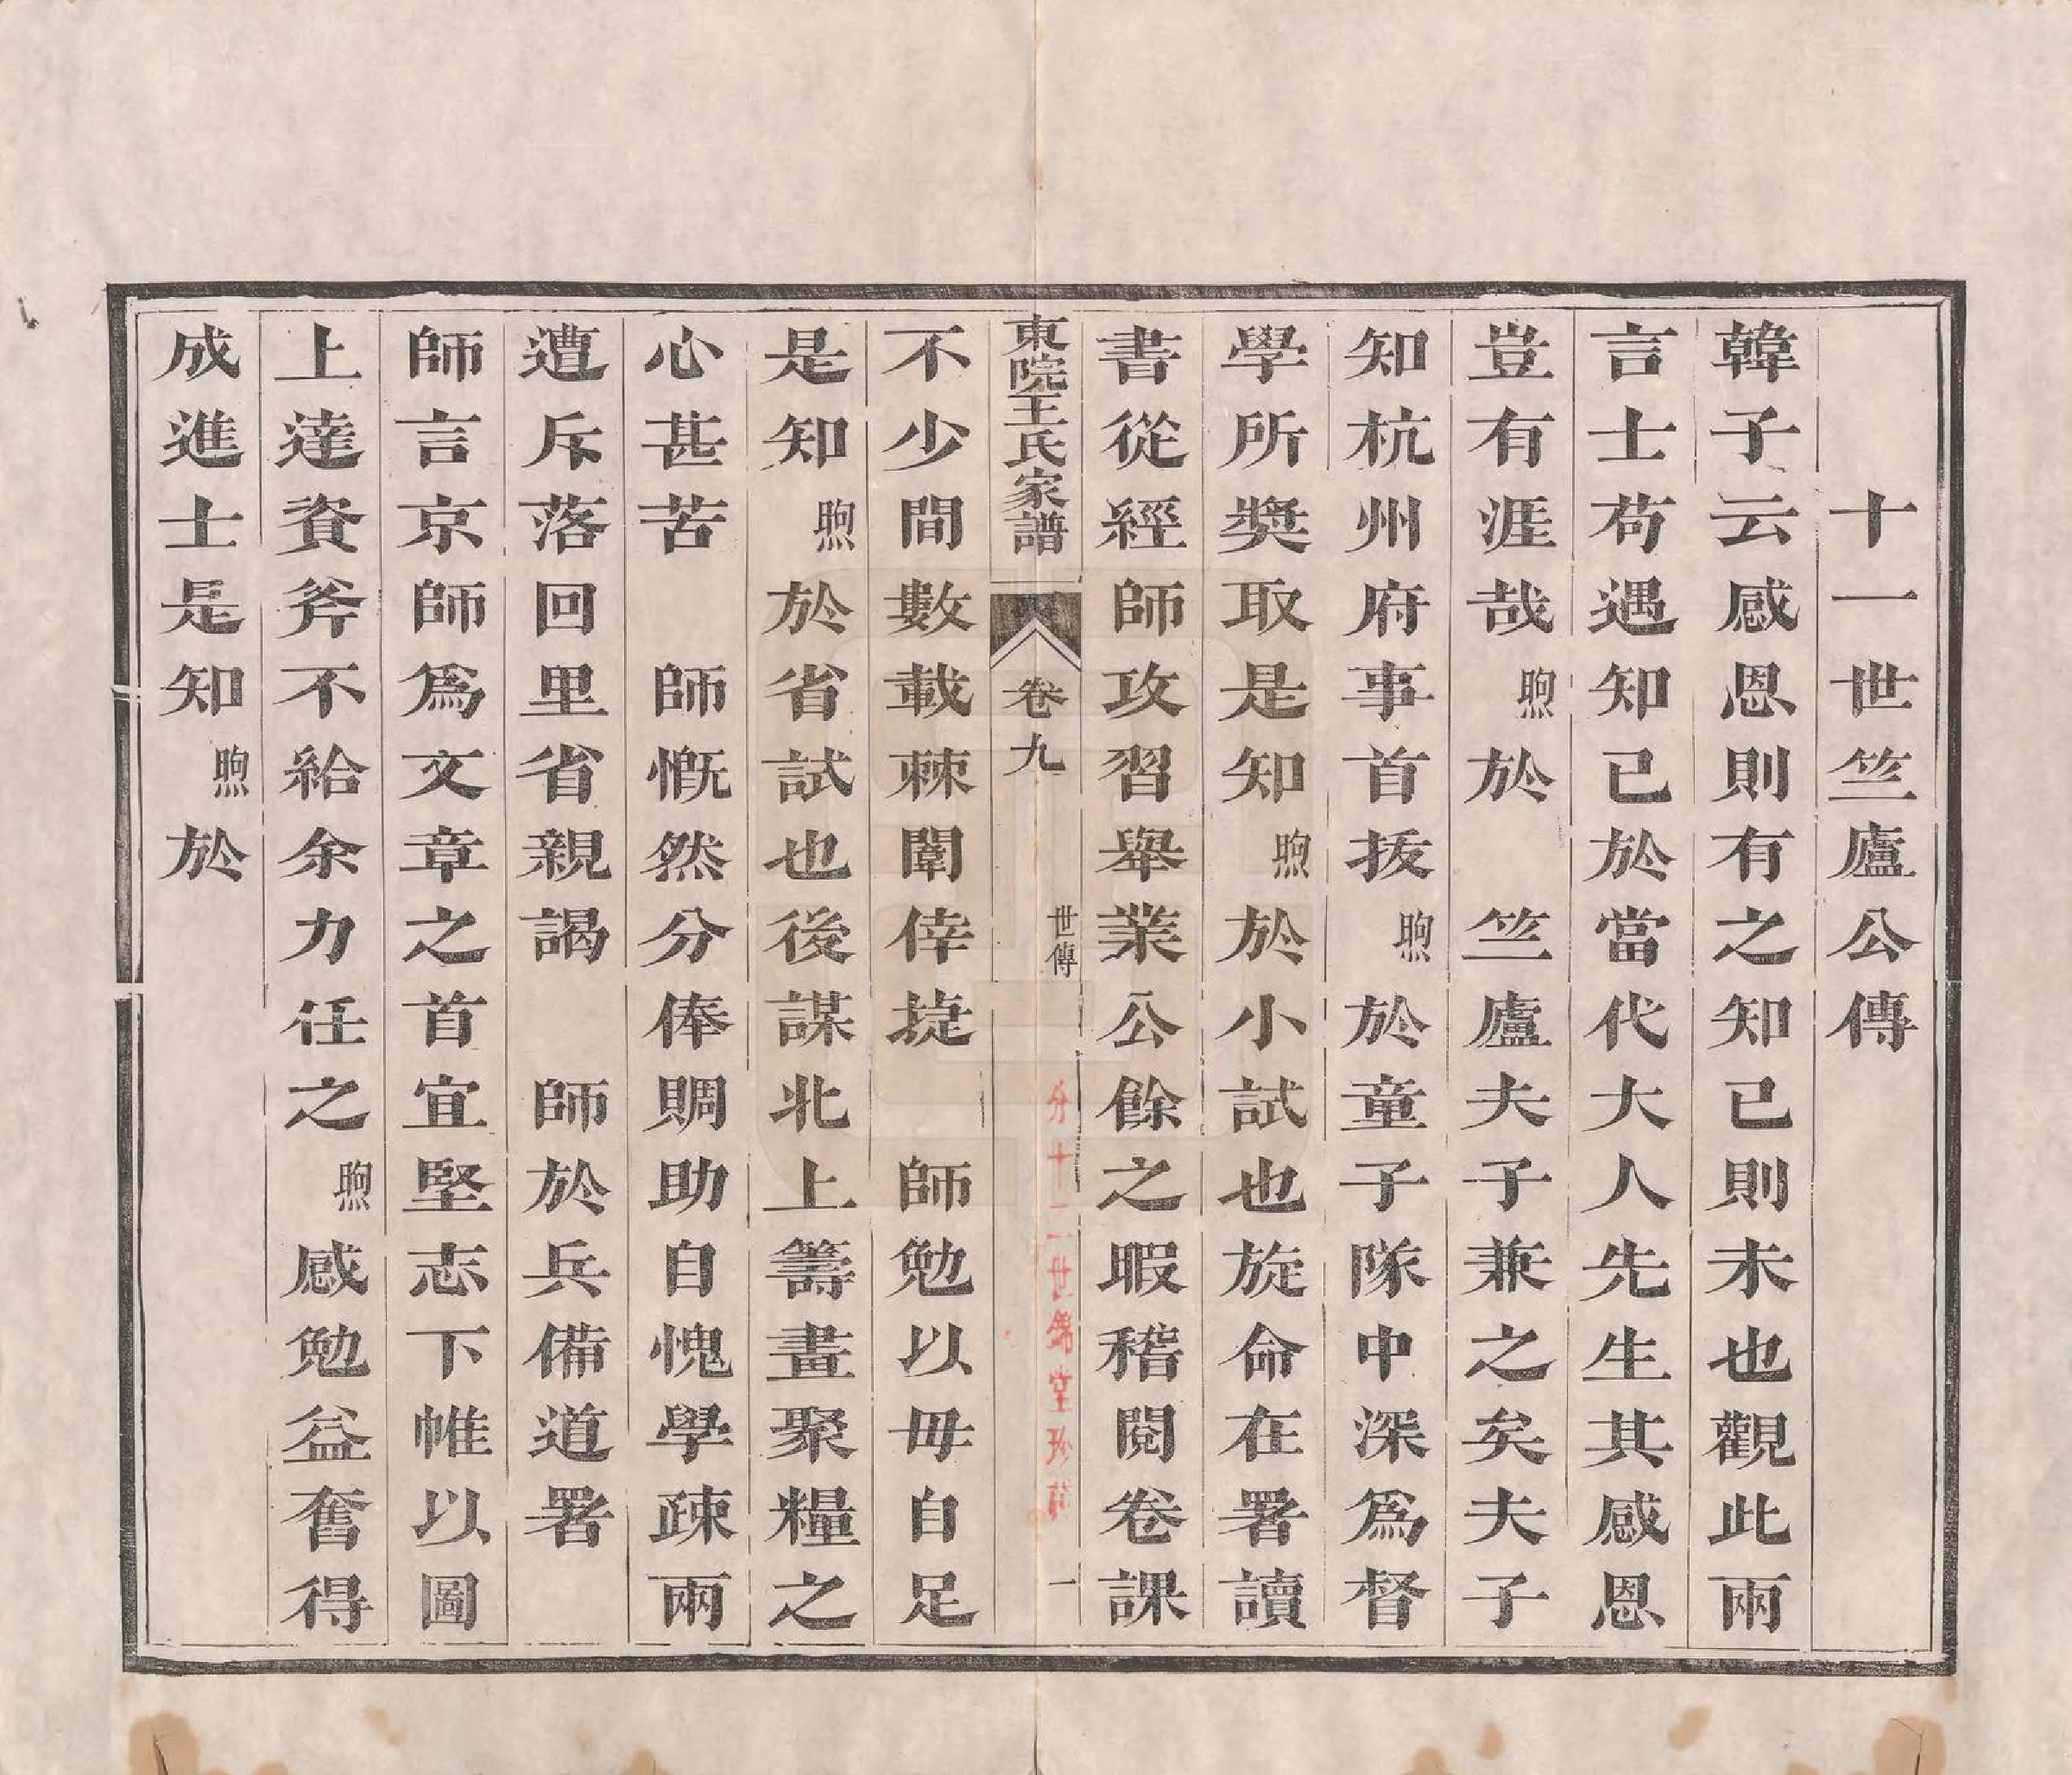 十一世竺廬公傳
韓子云感恩則有之知己則未也觀此兩
言士苟遇知己於當代大人先生其感恩
豈有涯哉煦於　竺廬夫子兼之矣夫子
知杭州府事首拔煦於童子隊中深爲督
學所奬取是知煦於小試也旋命在署讀
書從經師攻習舉業公餘之暇稽閱卷課
東院王氏家譜　卷九　世傳　一
分十二世錦堂珍藏
不少間數載棘闈倖捷　師勉以毋自足
是知煦於省試也後謀北上籌畫聚糧之
心甚苦　師慨然分俸賙助自愧學疎兩
遭斥落回里省親謁　師於兵備道署
師言京師爲文章之首宜堅志下帷以圖
上達資斧不給余力任之煦感勉益奮得
成進士是知煦於